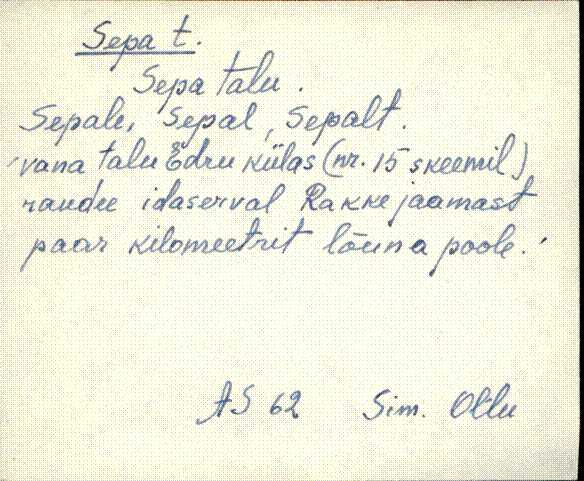 Sepa t.
Sepa talu.
Sepale, Sepal, Sepalt.
'vana talu Edru külas (nr. 15 skeemil)
raudtee idaserval Rakke jaamast
paar kilomeetrit lõuna poole.'
AS 62 Sim. Ollu